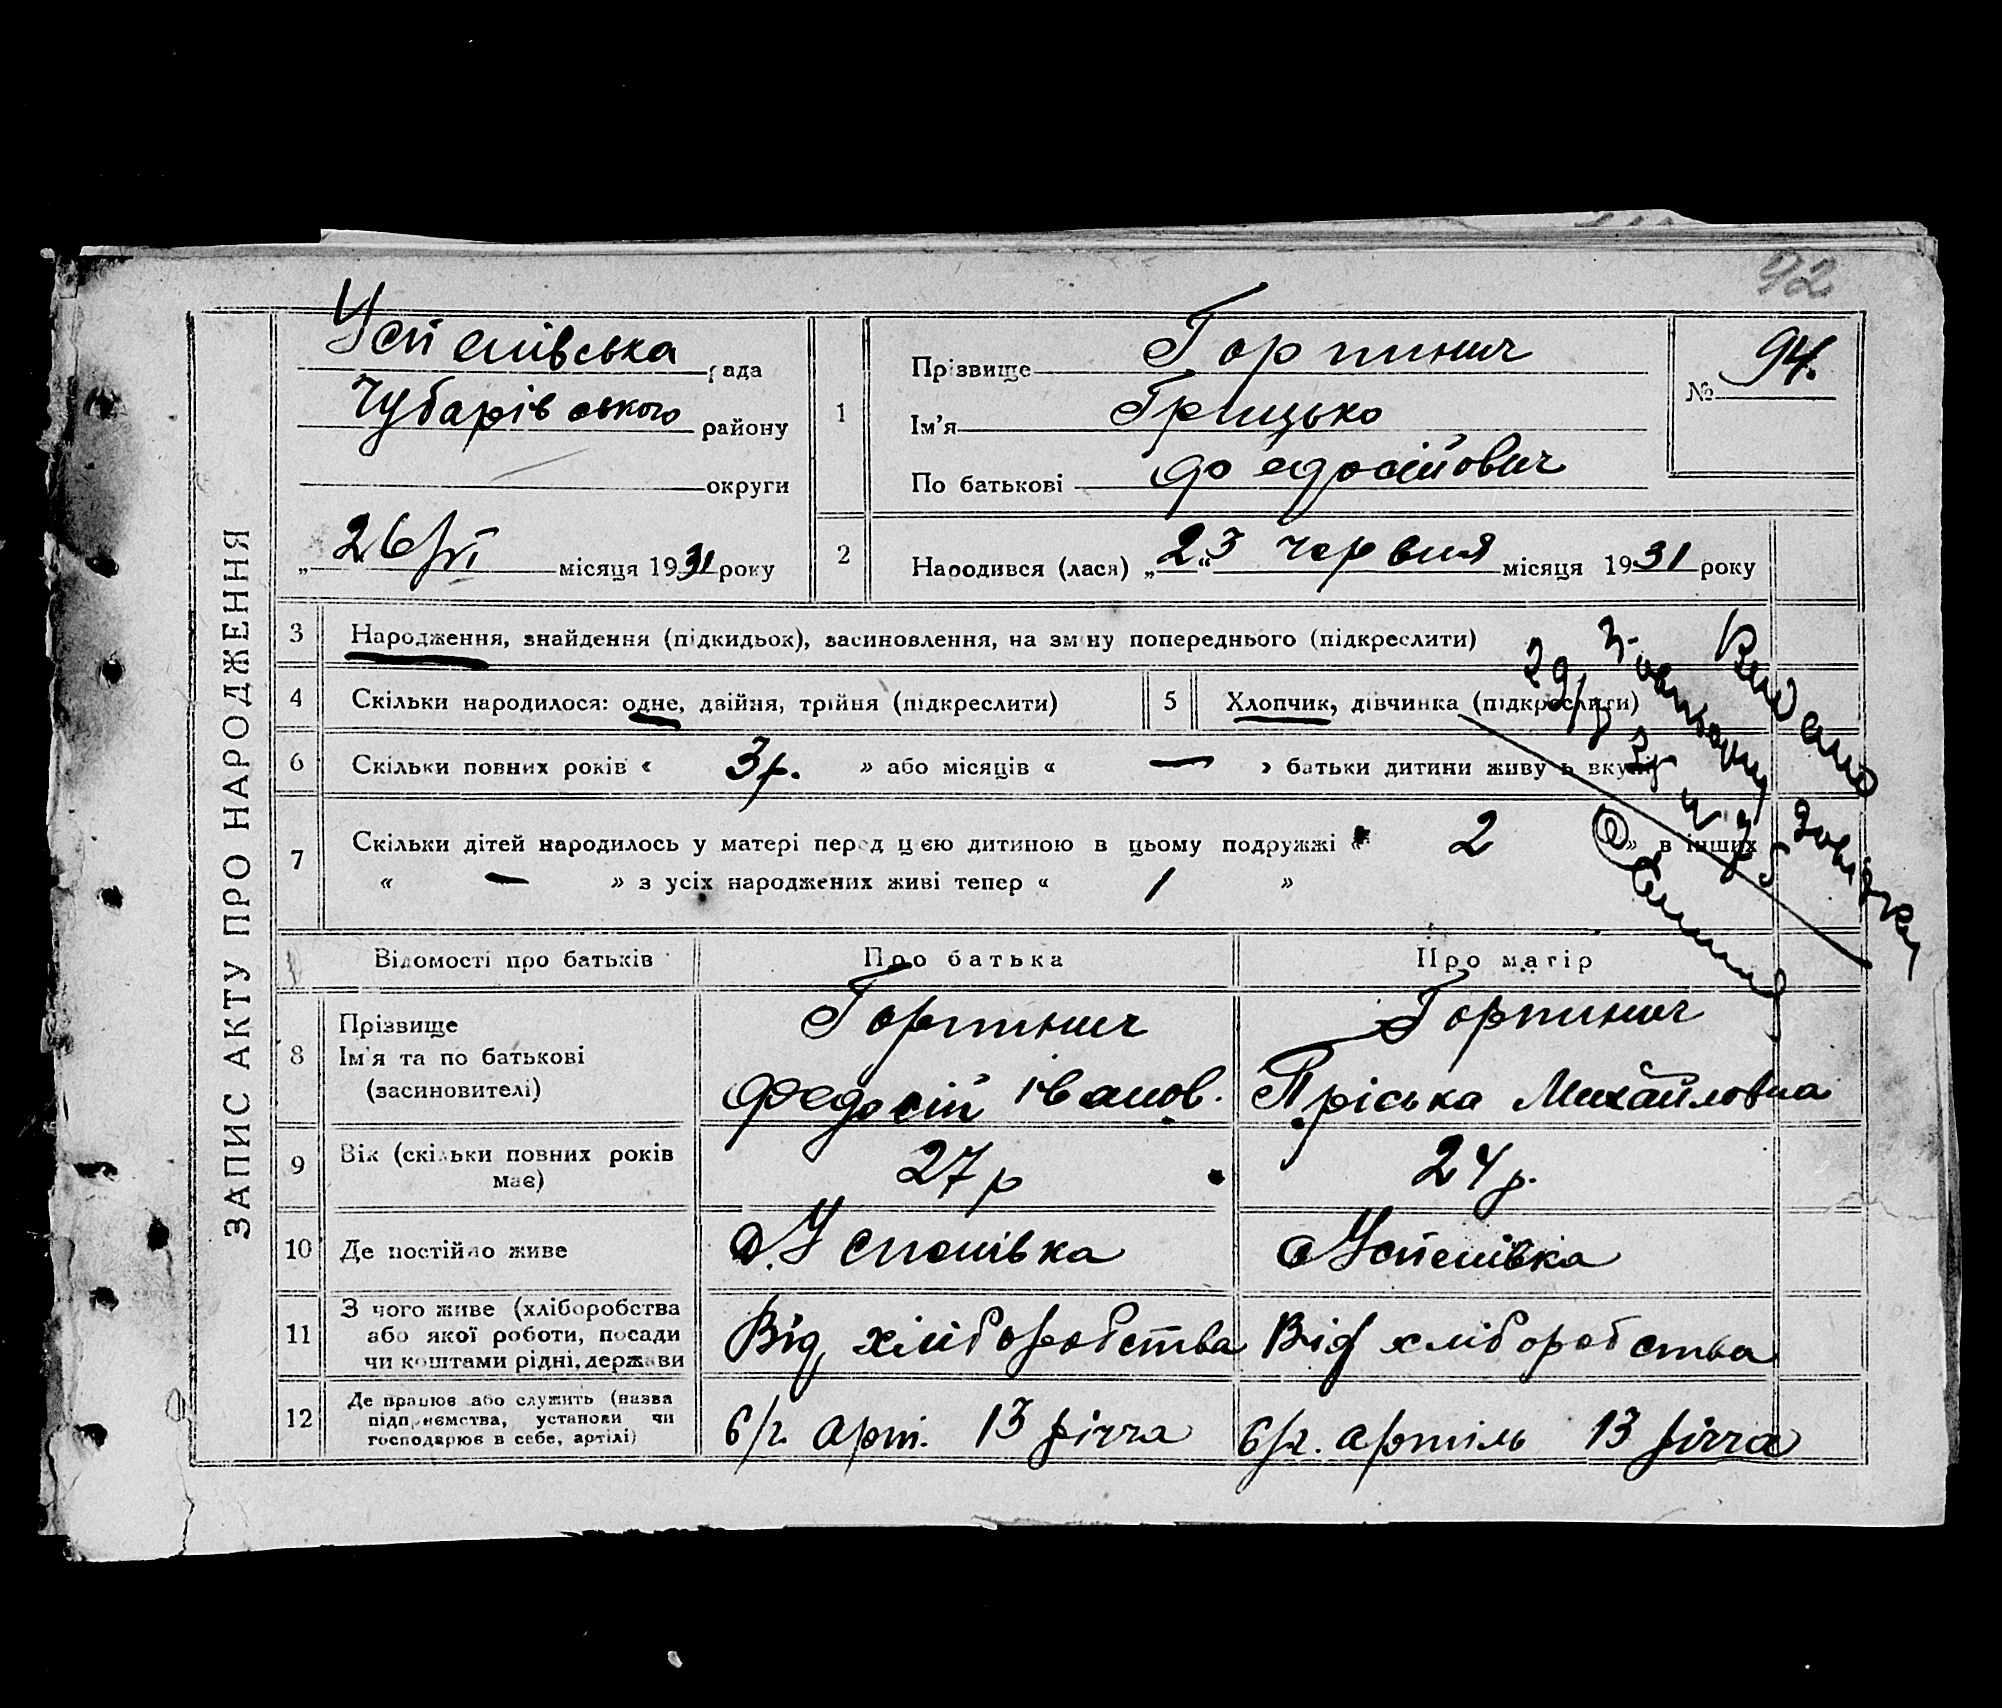 92
ЗАПИС АКТУ ПРО НАРОДЖЕННЯ
Успенівська рада
Чубарівського району
округи
„ 26/VI місяця 1931 року
1
Прізвище Горпинич
Ім'я Грицько
По батькові Федосійович
№ 94.
2
Народився (лася) „23“ червня місяця 1931 року
3 Народження, знайдення (підкидьок), засиновлення, на зміну попереднього (підкреслити)
4 Скільки народилося: одне, двійня, трійня (підкреслити)
5 Хлопчик, дівчинка (підкреслити)
6 Скільки повних років « 3 р. » або місяців « — » батьки дитини живуть вкупі
7 Скільки дітей народилось у матері перед цією дитиною в цьому подружжі « 2 » в інших
« — » з усіх народжених живі тепер « 1 »
Видано
Відомості про батьків Про батька Про матір
8 Прізвище Горпинич Горпинич
Ім'я та по батькові Федосій Іванов. Пріська Михайловна
(засиновителі)
9 Вік (скільки повних років має) 27 р 24 р.
10 Де постійно живе с. Успенівка с Успенівка
11 З чого живе (хліборобства або якої роботи, посади чи коштами рідні, держави Від хліборобства Від хліборобства
12 Де працює або служить (назва підприємства, установи чи господарює в себе, артілі) с/г. арт. 13 річча с/г. артіль 13 річча